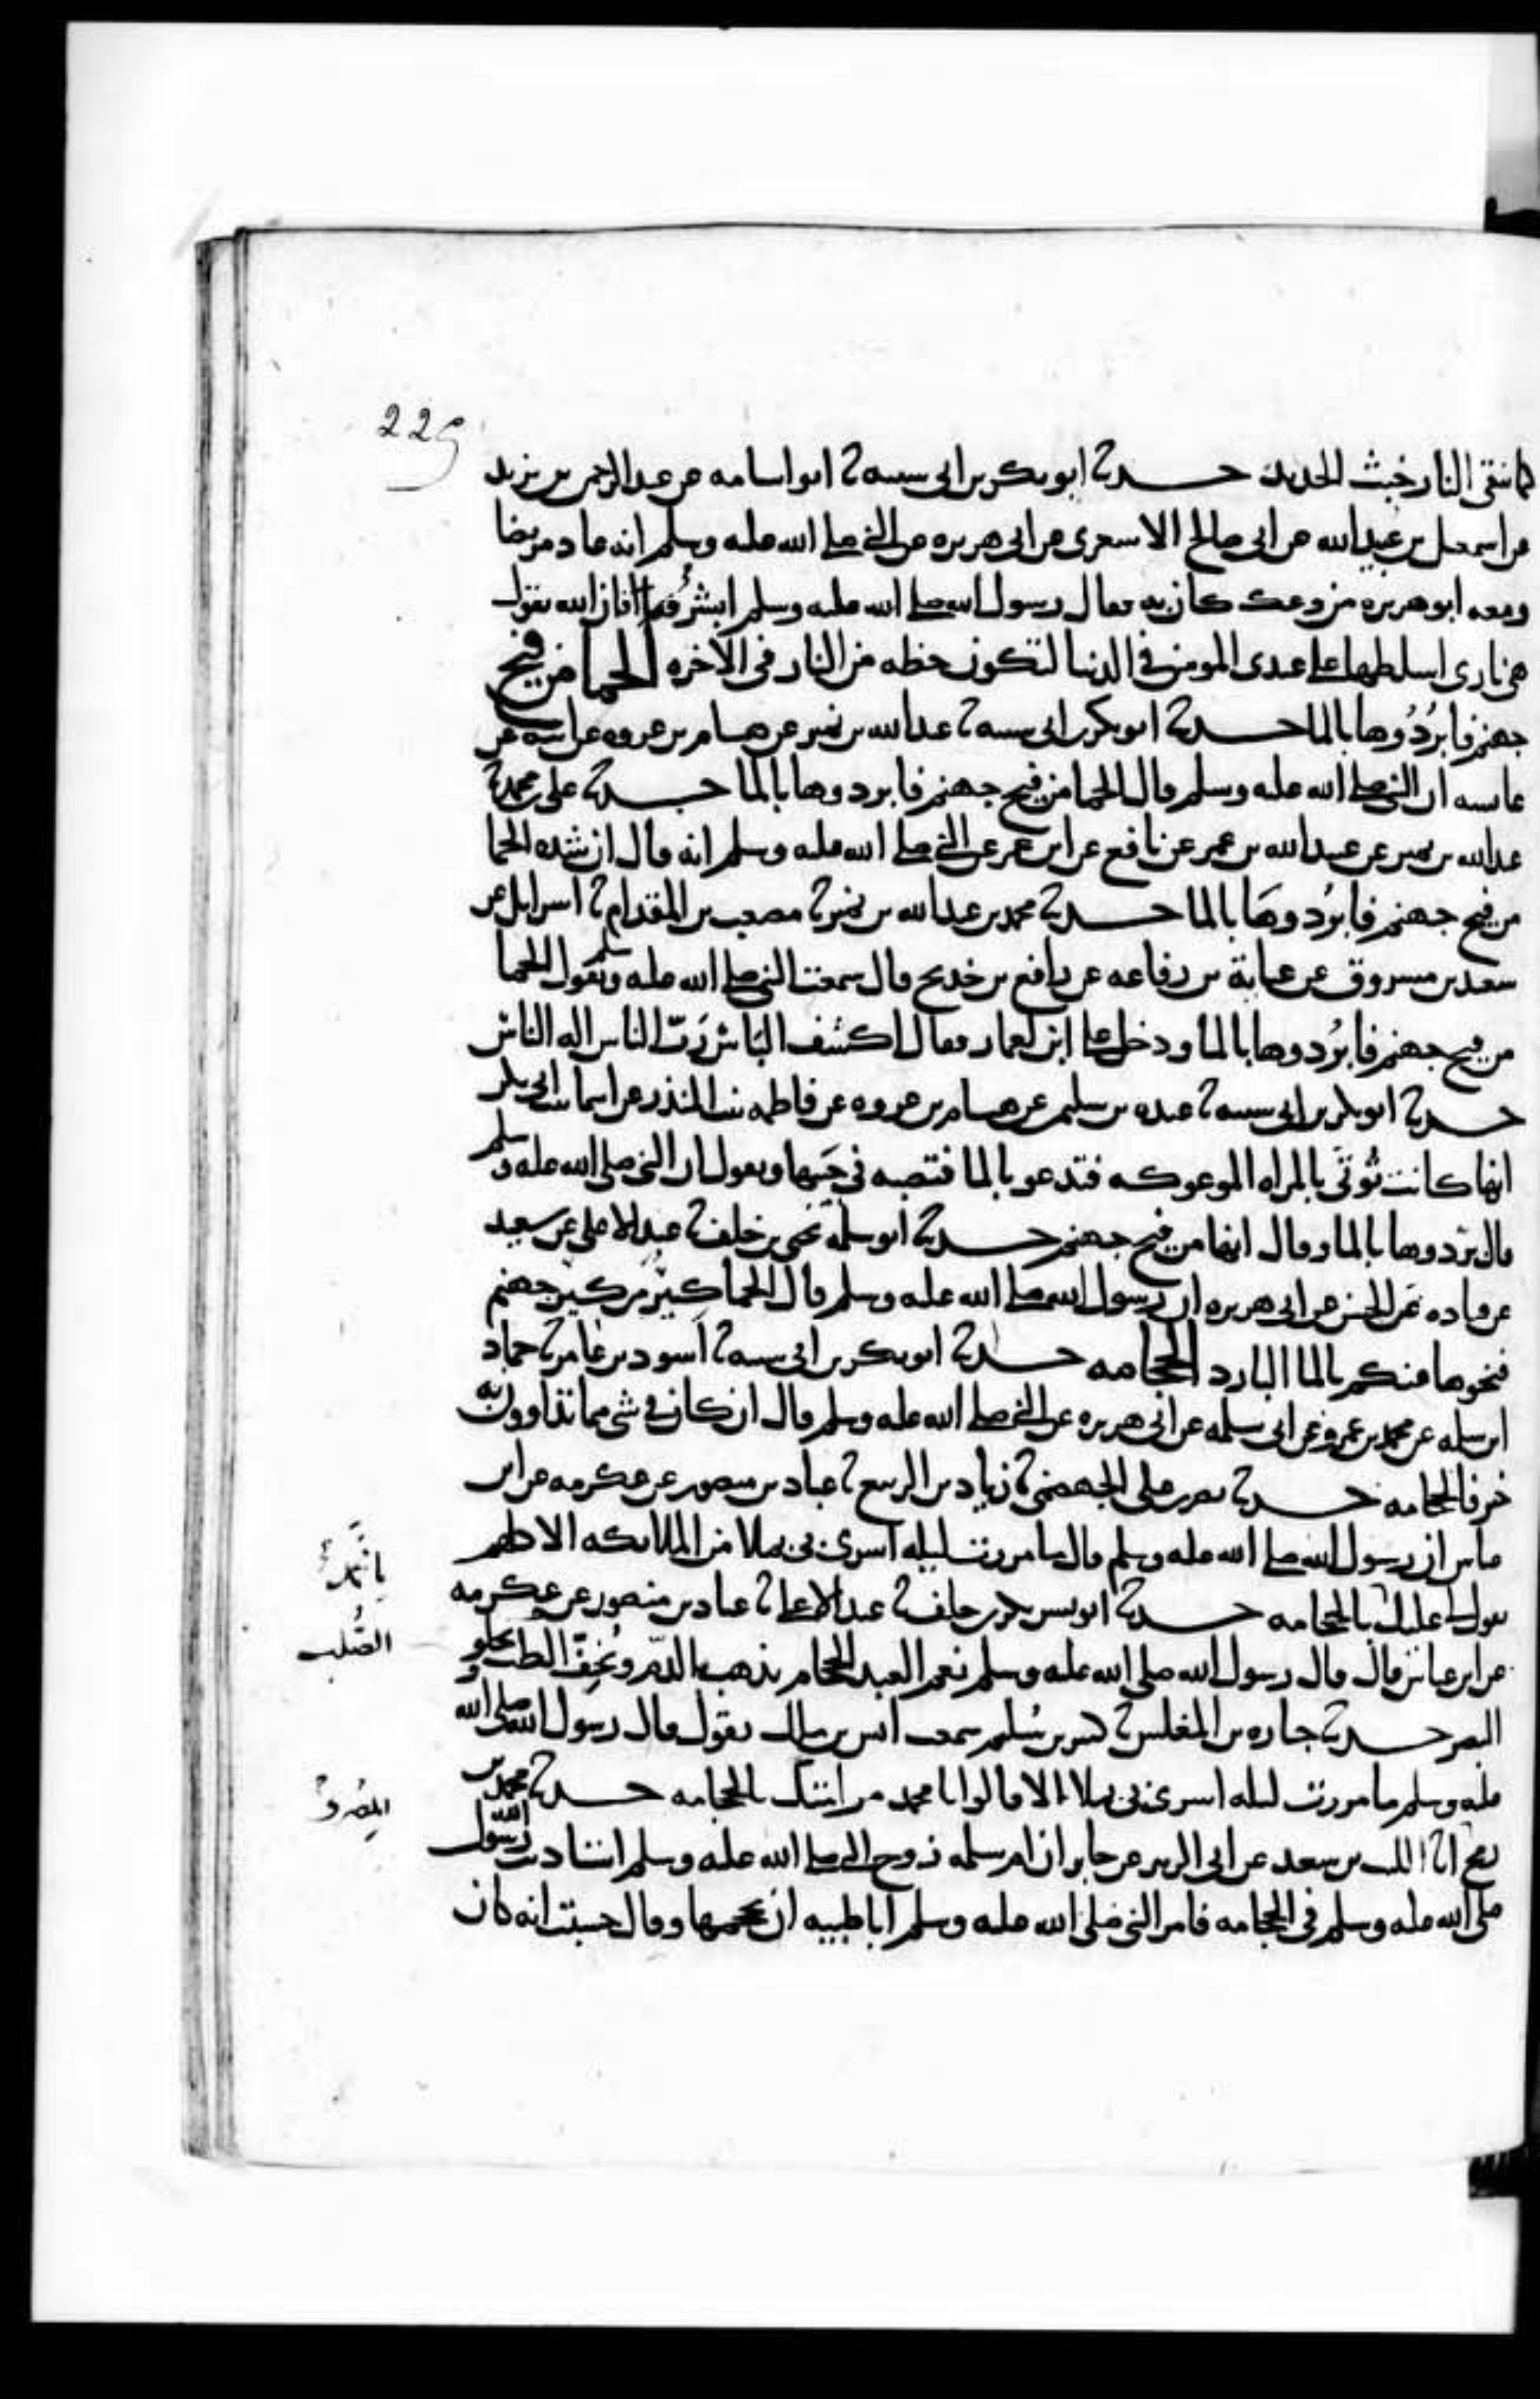 225
كما تنقي النار خبث الحديد حدثنا ابو بكر بن ابي شيبة نا ابو اسامه عن عبد الرحمن بن يزيد
عن اسمعيل بن عبيد الله عن ابي صالح الاشعري عن ابي هريره عن النبي صلى الله عليه وسلم انه عاد مريضا
ومعه ابو هريره من وعك كان به فقال رسول الله صلى الله عليه وسلم ابشر فان الله يقول
هي ناري اسلطها على عبدي المومن في الدنيا لتكون حظه من النار في الاخره الحما من فيح
جهنم فابردوها بالما حدثنا ابو بكر بن ابي شيبة نا عبد الله بن نمير عن هشام بن عروه عن ابيه عن
عايشه ان النبي صلى الله عليه وسلم قال الحما من فيح جهنم فابردوها بالما حدثنا علي بن محمد نا
عبد الله بن نمير عن عبيد الله بن عمر عن نافع عن ابن عمر عن النبي صلى الله عليه وسلم انه قال ان شده الحما
من فيح جهنم فابردوها بالما حدثنا محمد بن عبد الله بن نمير نا مصعب بن المقدام نا اسرايل عن
سعيد بن مسروق عن عباية بن رفاعه عن رافع بن خديج قال سمعت النبي صلى الله عليه وسلم يقول الحما
من فيح جهنم فابردوها بالما ودخل على ابن لعمار فقال اكشف الباس رب الناس اله الناس
حدثنا ابو بكر بن ابي شيبة نا عبده بن سليمن عن هشام بن عروه عن فاطمه بنت المنذر عن اسما بنت ابي بكر
انها كانت توتى بالمراه الموعوكه فتدعو بالما فتصبه في جيبها وتقول ان النبي صلى الله عليه وسلم
قال ابردوها بالما وقال انها من فيح جهنم حدثنا ابو سلمة يحيى بن خلف نا عبد الاعلى عن سعيد
عن قتاده عن الحسن عن ابي هريره ان رسول الله صلى الله عليه وسلم قال الحما كير من كير جهنم
فنحوها عنكم بالما البارد الحجامه حدثنا ابو بكر بن ابي شيبة نا اسود بن عامر نا حماد
ابن سلمه عن محمد بن عمرو عن ابي سلمه عن ابي هريره عن النبي صلى الله عليه وسلم قال ان كان في شي مما تداوون به
خير فالحجامه حدثنا نصر بن علي الجهضمي نا زياد بن الربيع نا عباد بن منصور عن عكرمه عن ابن
عباس ان رسول الله صلى الله عليه وسلم قال ما مررت ليله اسري بي بملا من الملائكه الا كلهم
يقول لي عليك بالحجامه حدثنا ابو بشر بكر بن خلف نا عبد الاعلى نا عباد بن منصور عن عكرمه
عن ابن عباس قال قال رسول الله صلى الله عليه وسلم نعم العبد الحجام يذهب بالدم ويخف الصلب ويجلو
البصر حدثنا جباره بن المغلس نا كثير بن سليم سمعت انس بن مالك يقول قال رسول الله صلى الله
عليه وسلم ما مررت ليله اسري بي بملا الا قالوا يا محمد مر امتك بالحجامه حدثنا محمد بن
رمح انا الليث بن سعد عن ابي الزبير عن جابر ان ام سلمه زوج النبي صلى الله عليه وسلم استاذنت رسول الله
صلى الله عليه وسلم في الحجامه فامر النبي صلى الله عليه وسلم ابا طيبه ان يحجمها وقال حسبت انه كان
الصلب